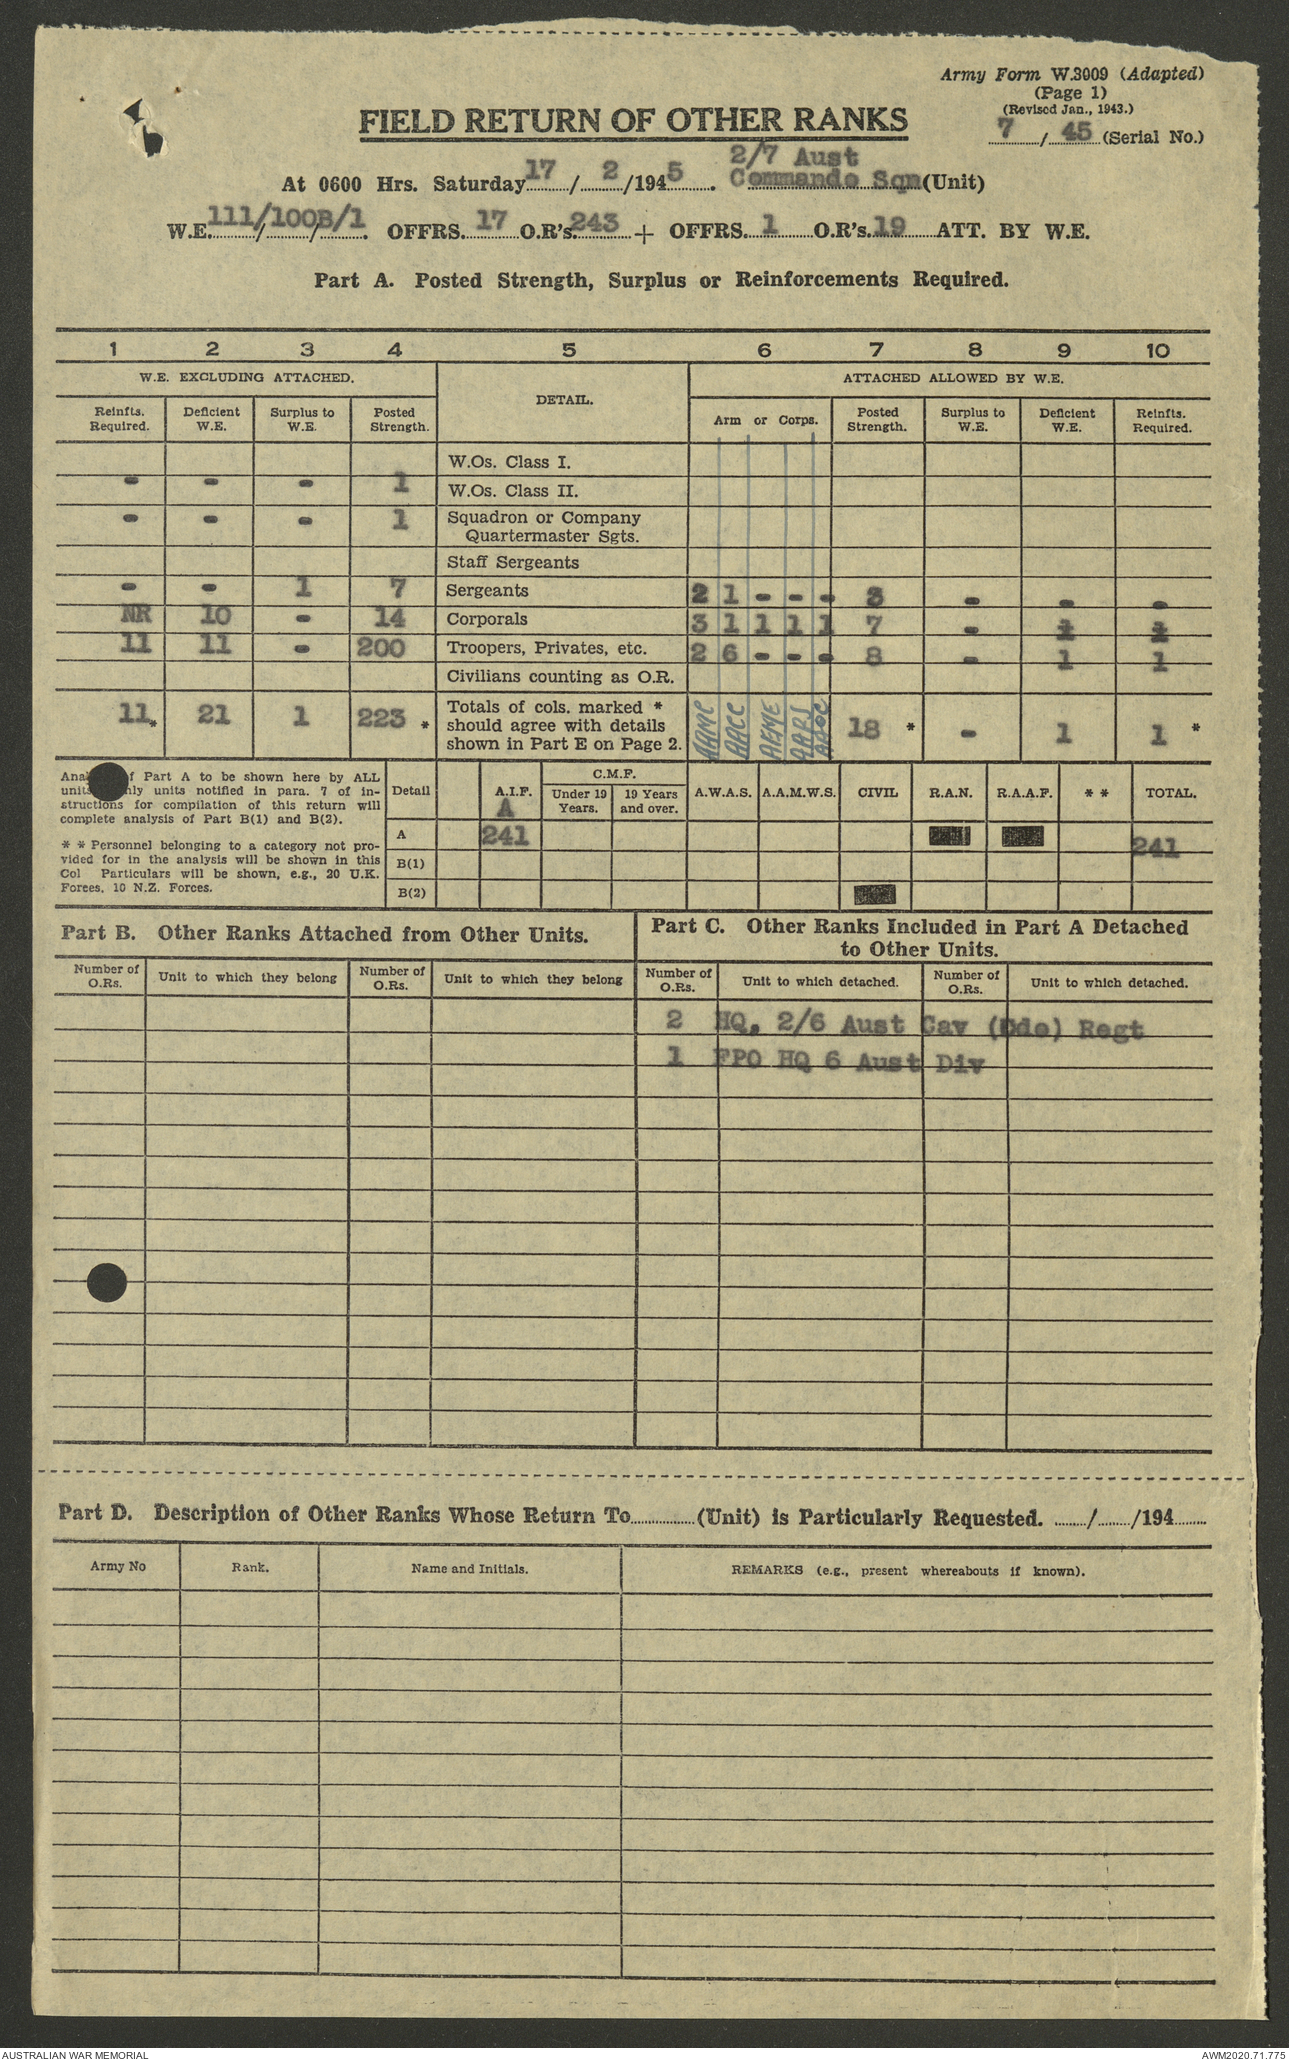 Army Form W.3009 (Adapted)
(Page 1)
(Revised Jan., 1943.)
7 / 45 (Serial No.)
FIELD RETURN OF OTHER RANKS
2/7 Aust
At 0600 Hrs. Saturday 17 / 2 /1945. Commando Sqn (Unit)
W.E. 111/100B/1. OFFRS. 17 O.R's. 243 + OFFRS. 1 O.R's. 19 ATT. BY W.E.
Part A. Posted Strength, Surplus or Reinforcements Required.
1 2 3 4 5 6 7 8 9 10
W.E. EXCLUDING ATTACHED. DETAIL. ATTACHED ALLOWED BY W.E.
Reinfts. Required. Deficient W.E. Surplus to W.E. Posted Strength. Arm or Corps. Posted Strength. Surplus to W.E. Deficient W.E. Reinfts. Required.
W.Os. Class I.
- - - 1 W.Os. Class II.
- - - 1 Squadron or Company
Quartermaster Sgts.
Staff Sergeants
- - 1 7 Sergeants 2 1 - - - 3 - - -
NR 10 - 14 Corporals 3 1 1 1 1 7 -
11 11 - 200 Troopers, Privates, etc. 2 6 - - - 8 - 1 1
Civilians counting as O.R.
11* 21 1 223 * Totals of cols. marked * should agree with details shown in Part E on Page 2. AAMC AACC AEME AAPS AAOC 18 * - 1 1 *
Analysis of Part A to be shown here by ALL
units. Only units notified in para. 7 of in-
structions for compilation of this return will
complete analysis of Part B(1) and B(2).
* * Personnel belonging to a category not pro-
vided for in the analysis will be shown in this
Col Particulars will be shown, e.g., 20 U.K.
Forces, 10 N.Z. Forces.
Detail A.I.F. C.M.F. Under 19 Years. 19 Years and over. A.W.A.S. A.A.M.W.S. CIVIL R.A.N. R.A.A.F. * * TOTAL.
A
A 241 241
B(1)
B(2)
Part B. Other Ranks Attached from Other Units.
Part C. Other Ranks Included in Part A Detached
to Other Units.
Number of O.Rs. Unit to which they belong Number of O.Rs. Unit to which they belong Number of O.Rs. Unit to which detached. Number of O.Rs. Unit to which detached.
2 HQ, 2/6 Aust Cav (Cdo) Regt
1 FPO HQ 6 Aust Div
Part D. Description of Other Ranks Whose Return To............(Unit) is Particularly Requested. ....../....../194......
Army No Rank. Name and Initials. REMARKS (e.g., present whereabouts if known).
AUSTRALIAN WAR MEMORIAL AWM2020.71.775